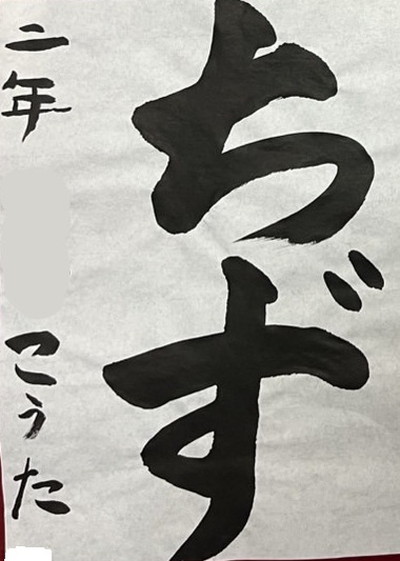 ちず
二年 こうた